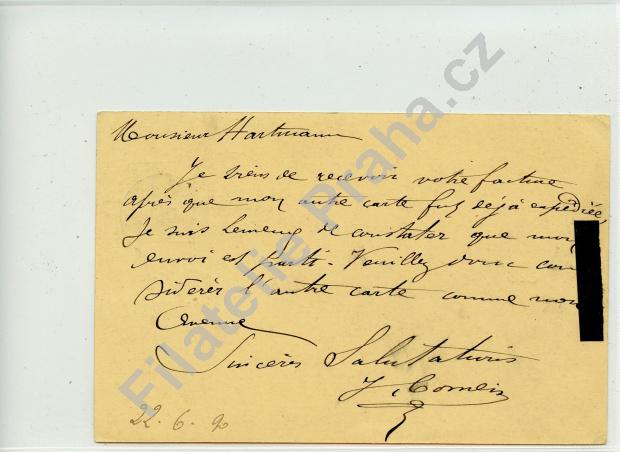 Monsieur Hartmann
Je viens de recevoir votre facture
après que mon autre carte fut déjà expédiée,
Je suis heureux de constater que mon
envoi est parti - Veuillez donc con
sidérer l'autre carte comme non
avenue
Sincères Salutations
J. Cornein
22. 6. 90
Filatelie Praha.cz